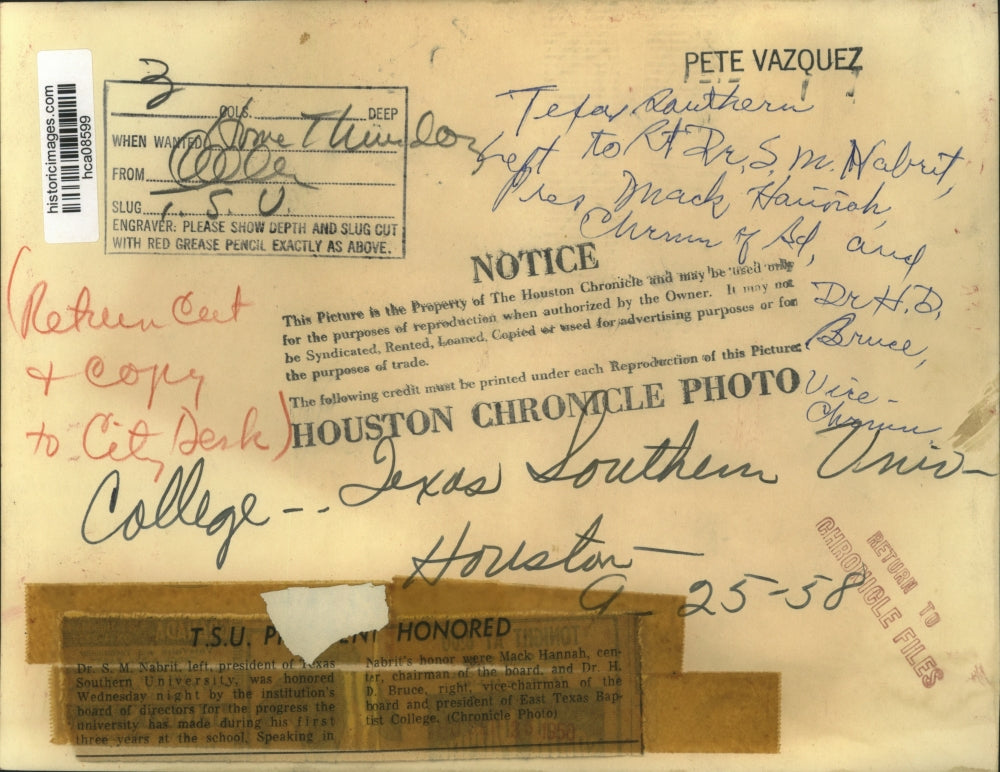 historicimages.com
hca08599
PETE VAZQUEZ
3 COLS. DEEP
WHEN WANTED
FROM
SLUG T. S. U.
ENGRAVER: PLEASE SHOW DEPTH AND SLUG CUT
WITH RED GREASE PENCIL EXACTLY AS ABOVE.
Texas Southern
Left to Rt Dr. S. M. Nabrit,
Pres Mack Hannah,
Chrmn of Bd, and
Dr H. D.
Bruce,
Vice-
Chrmn
(Return Cut
+ copy
to City Desk)
NOTICE
This Picture is the Property of The Houston Chronicle and may be used only
for the purposes of reproduction when authorized by the Owner. It may not
be Syndicated, Rented, Loaned, Copied or used for advertising purposes or for
the purposes of trade.
The following credit must be printed under each Reproduction of this Picture:
HOUSTON CHRONICLE PHOTO
College -- Texas Southern Univ-
Houston
9-25-58
RETURN TO
CHRONICLE FILES
T.S.U. HONORED
Dr. S. M. Nabrit, left, president of Texas
Southern University, was honored
Wednesday night by the institution's
board of directors for the progress the
university has made during his first
three years at the school. Speaking in
Nabrit's honor were Mack Hannah, cen-
ter, chairman of the board, and Dr. H.
D. Bruce, right, vice-chairman of the
board and president of East Texas Bap-
tist College. (Chronicle Photo)